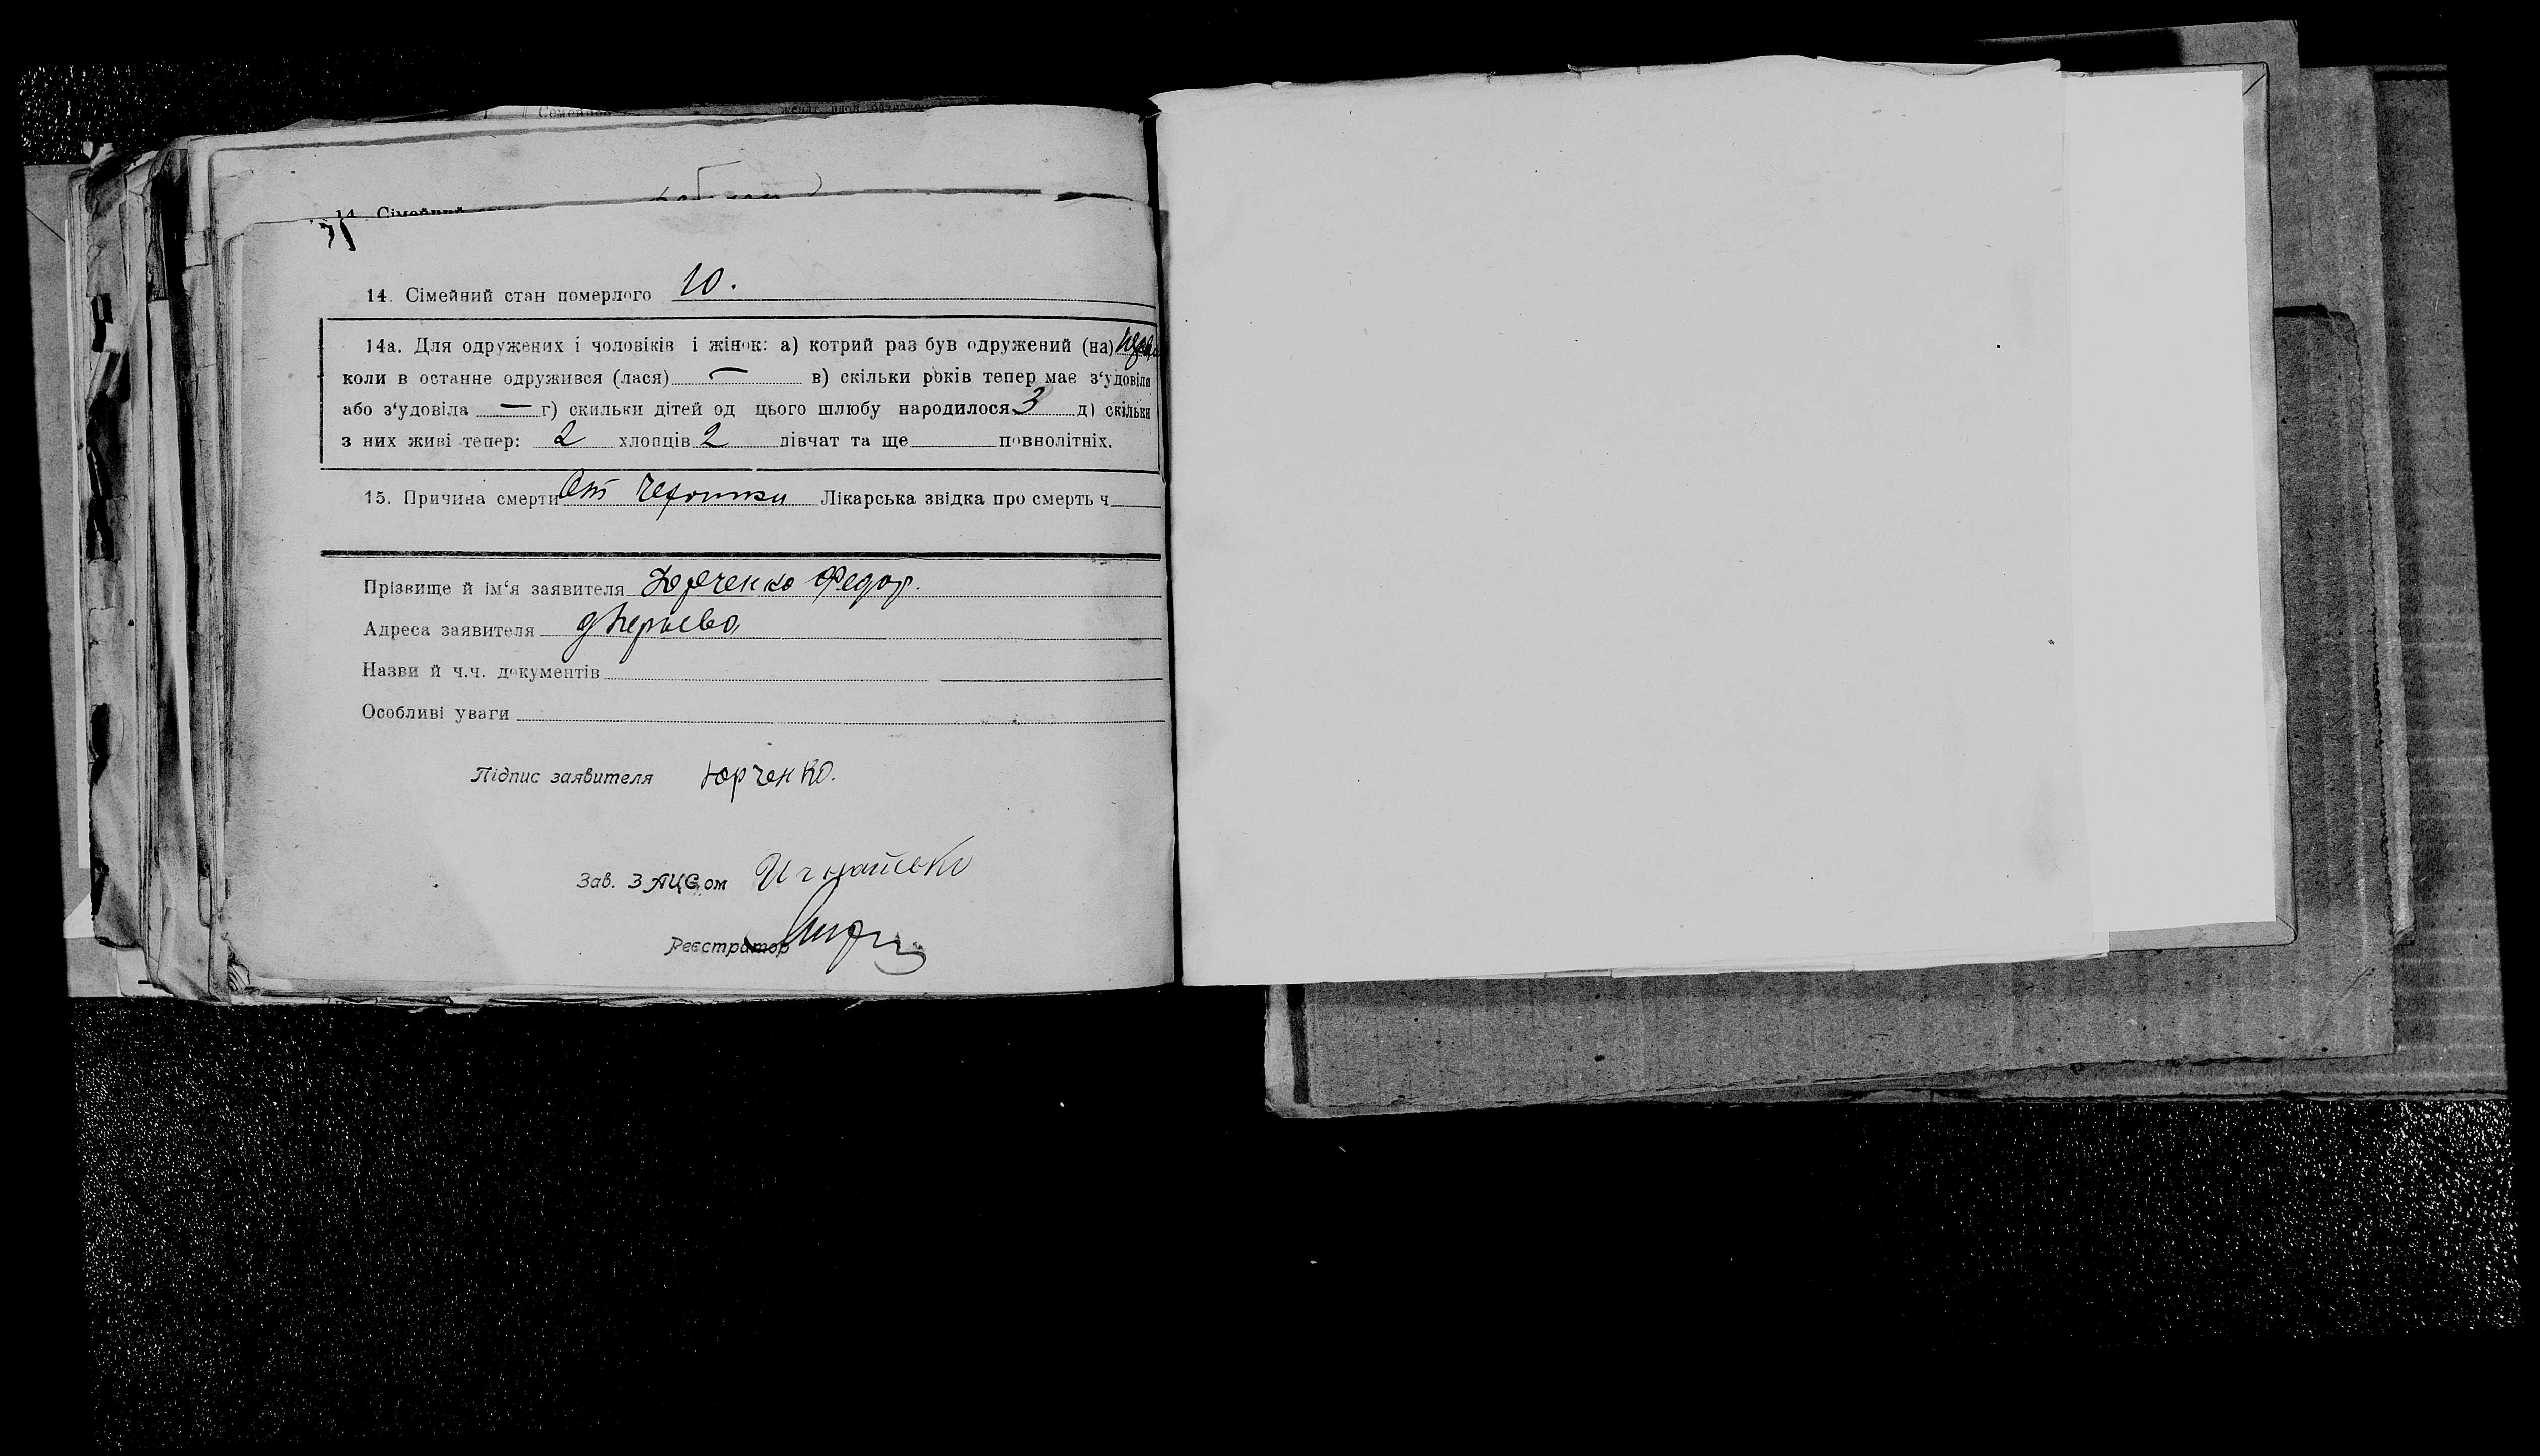 Семейно
14. Сімейний
14. Сімейний стан померлого 10.
14а. Для одружених і чоловіків і жінок: а) котрий раз був одружений (на)
коли в останнє одружився (лася) — в) скільки років тепер має з‘удовіля
або з‘удовіла — г) скильки дітей од цього шлюбу народилося 3 д) скільки
з них живі тепер: 2 хлопців 2 дівчат та ще повнолітніх.
15. Причина смерти От чехотки Лікарська звідка про смерть ч
Прізвище й ім‘я заявителя Юрченко Федор.
Адреса заявителя
Назви й ч.ч. документів
Особливі уваги
Підпис заявителя Юрченко.
Зав. ЗАЦС,ом
Реєстратор